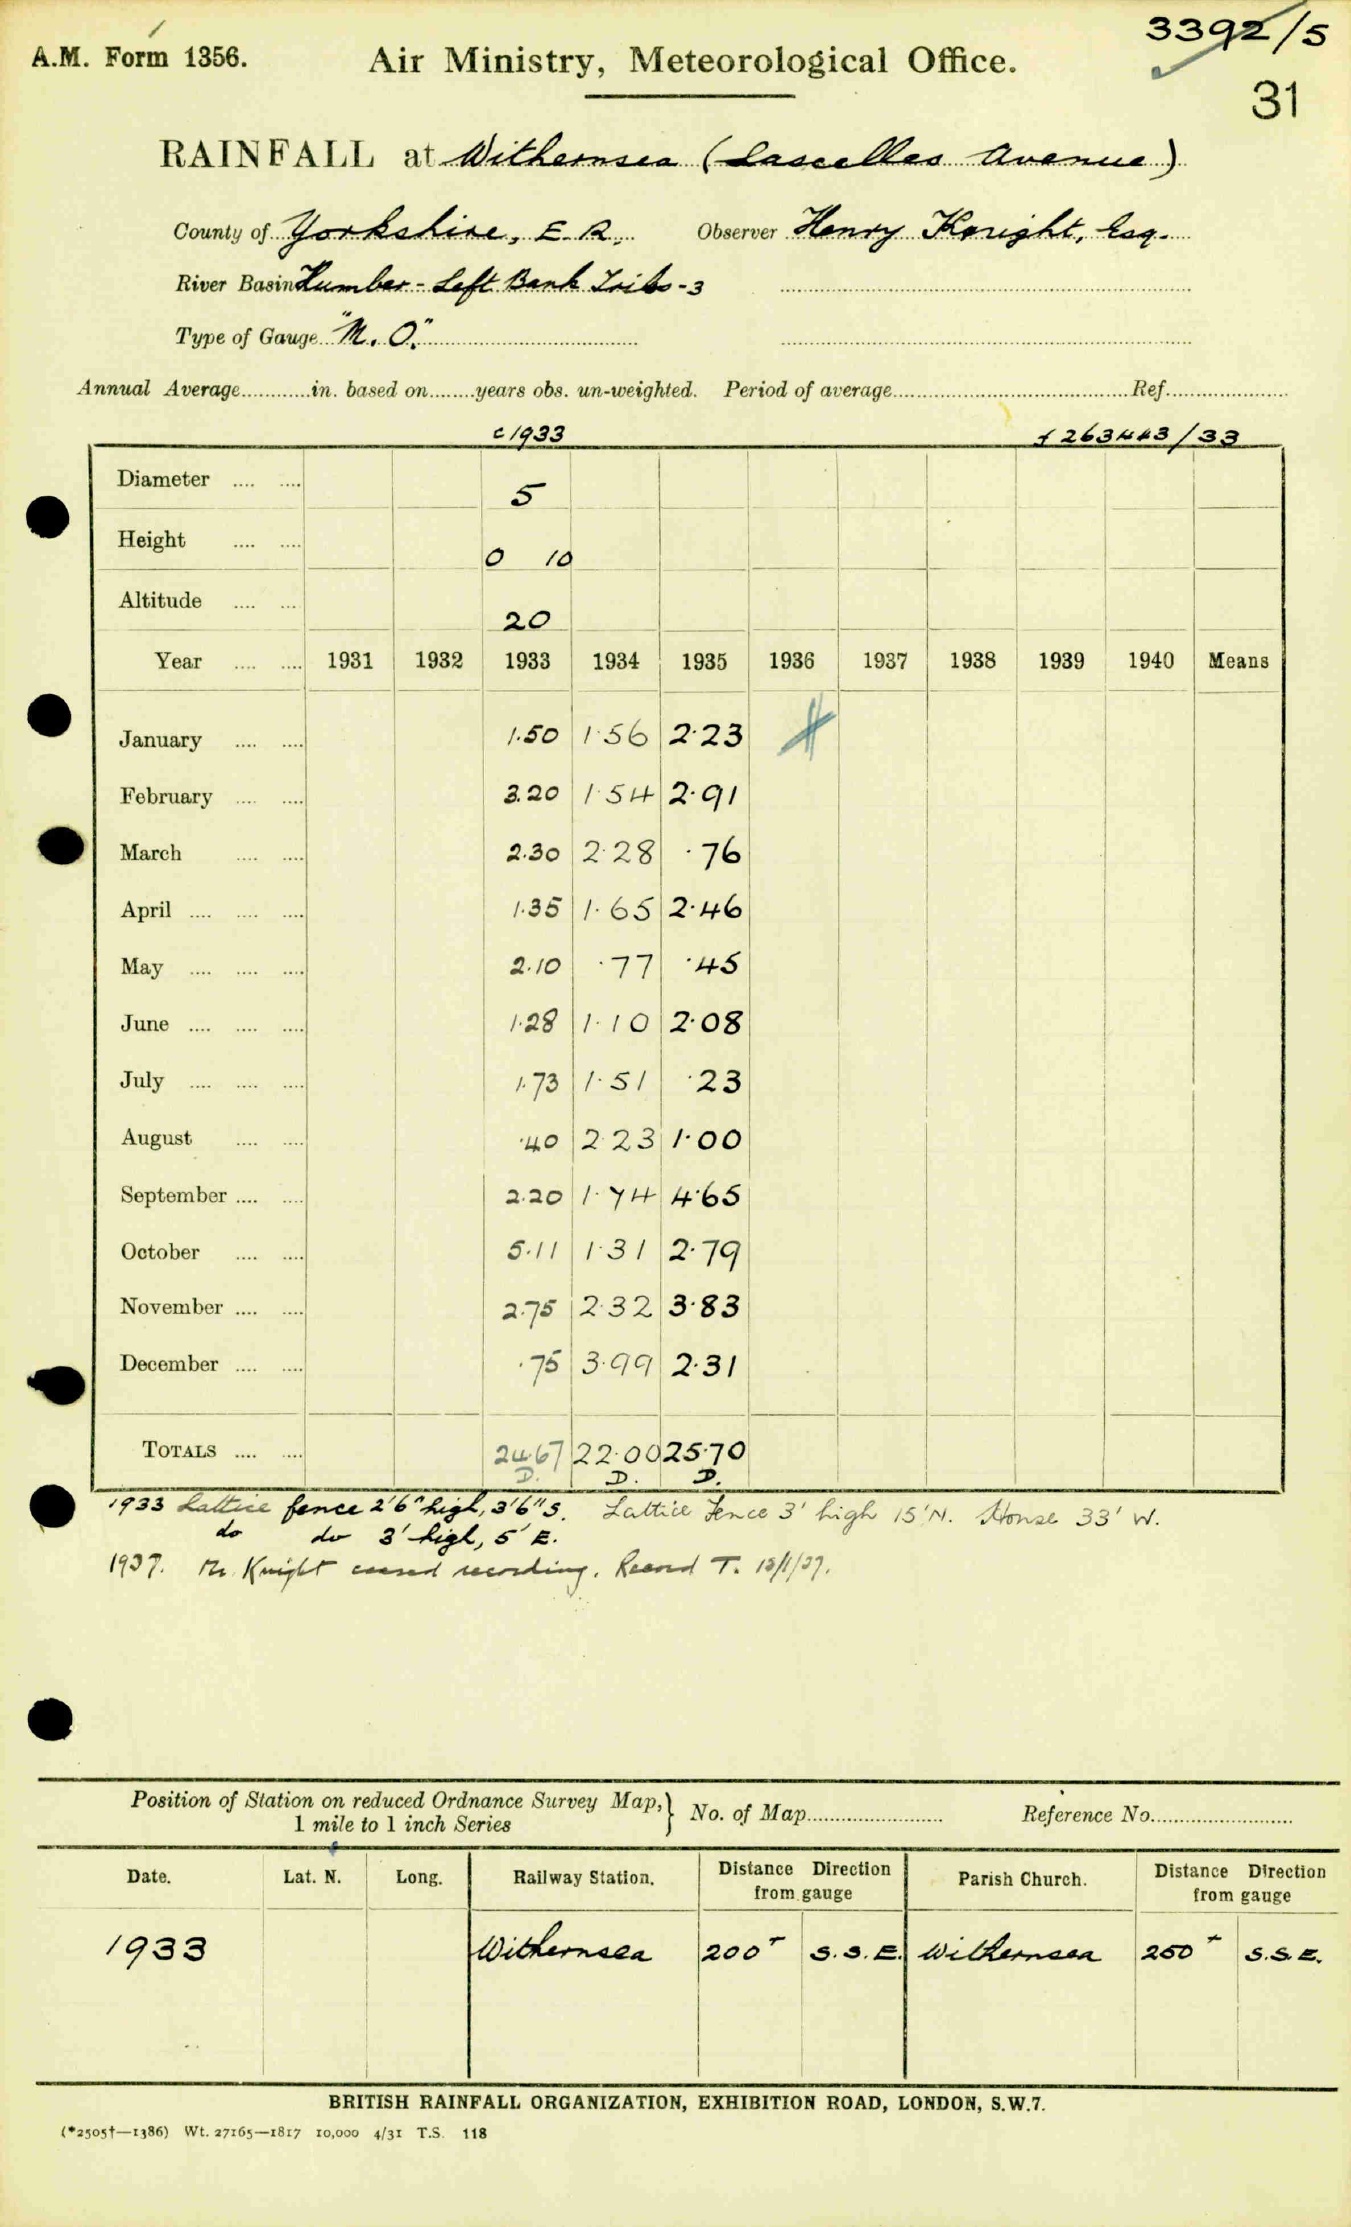 3392/5
A.M. Form 1356. Air Ministry, Meteorological Office.
31
RAINFALL at Withernsea (Lascelles Avenue)
County of Yorkshire, E.R. Observer Henry Knight, Esq.
River Basin Humber - Left Bank Tribs - 3
Type of Gauge "M.O."
Annual Average in. based on years obs. un-weighted. Period of average Ref.
c 1933 f 263443/33
Diameter 5
Height 0 10
Altitude 20
Year 1931 1932 1933 1934 1935 1936 1937 1938 1939 1940 Means
January 1.50 1.56 2.23
February 3.20 1.54 2.91
March 2.30 2.28 .76
April 1.35 1.65 2.46
May 2.10 .77 .45
June 1.28 1.10 2.08
July 1.73 1.51 .23
August .40 2.23 1.00
September 2.20 1.74 4.65
October 5.11 1.31 2.79
November 2.75 2.32 3.83
December .75 3.99 2.31
TOTALS 24.67 22.00 25.70
D. D. D.
1933 Lattice fence 2'6" high, 3'6" S. Lattice Fence 3' high 15' N. House 33' W.
do do 3' high, 5' E.
1937. Mr. Knight ceased recording. Record T.
Position of Station on reduced Ordnance Survey Map, } No. of Map Reference No.
1 mile to 1 inch Series
Date. Lat. N. Long. Railway Station. Distance Direction from gauge Parish Church. Distance Direction from gauge
1933 Withernsea 200 + S.S.E. Withernsea 250 + S.S.E.
BRITISH RAINFALL ORGANIZATION, EXHIBITION ROAD, LONDON, S.W.7.
(*2505†—1386) Wt. 27165—1817 10,000 4/31 T.S. 118